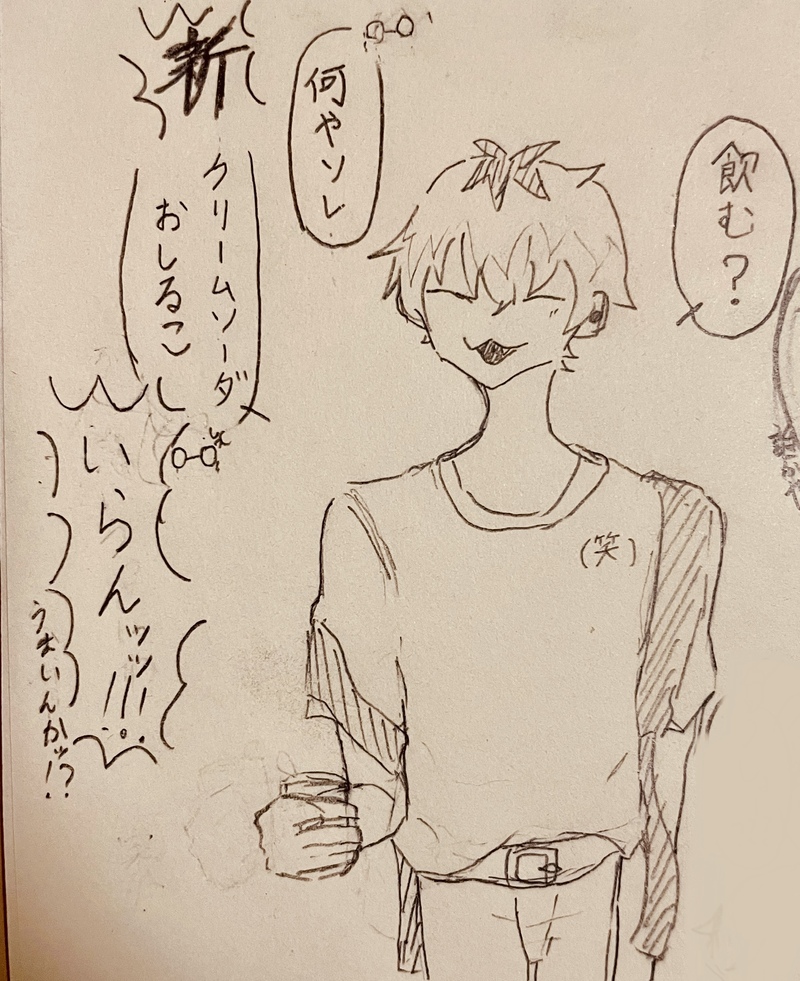 飲む？
何やソレ
新
クリームソーダ
おしるこ
いらんッッ!!!
うまいんかッ!?
(笑)